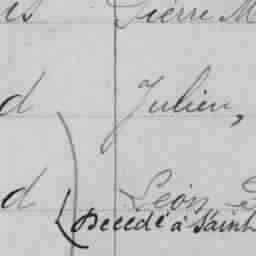 Pierre M
d Julien,
d Léon
Décédé à Saint